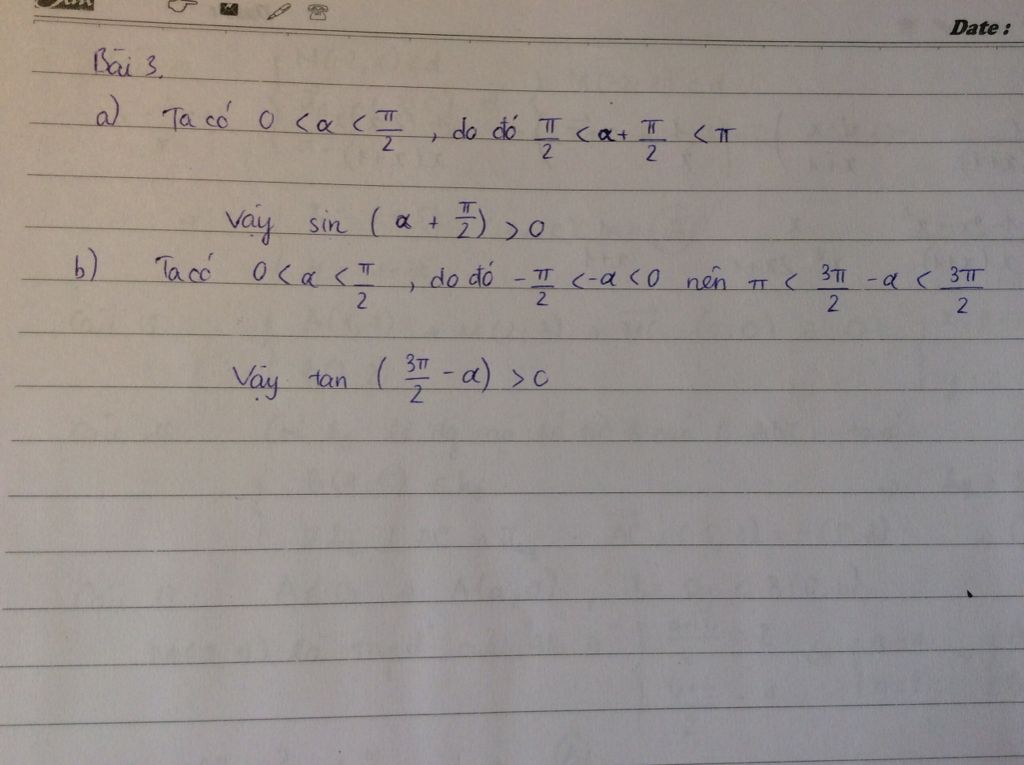 Date :
Bài 3.
a) Ta có 0 < α < π/2 , do đó π/2 < α + π/2 < π
Vậy sin ( α + π/2 ) > 0
b) Ta có 0 < α < π/2 , do đó -π/2 < -α < 0 nên π < 3π/2 - α < 3π/2
Vậy tan ( 3π/2 - α ) > 0